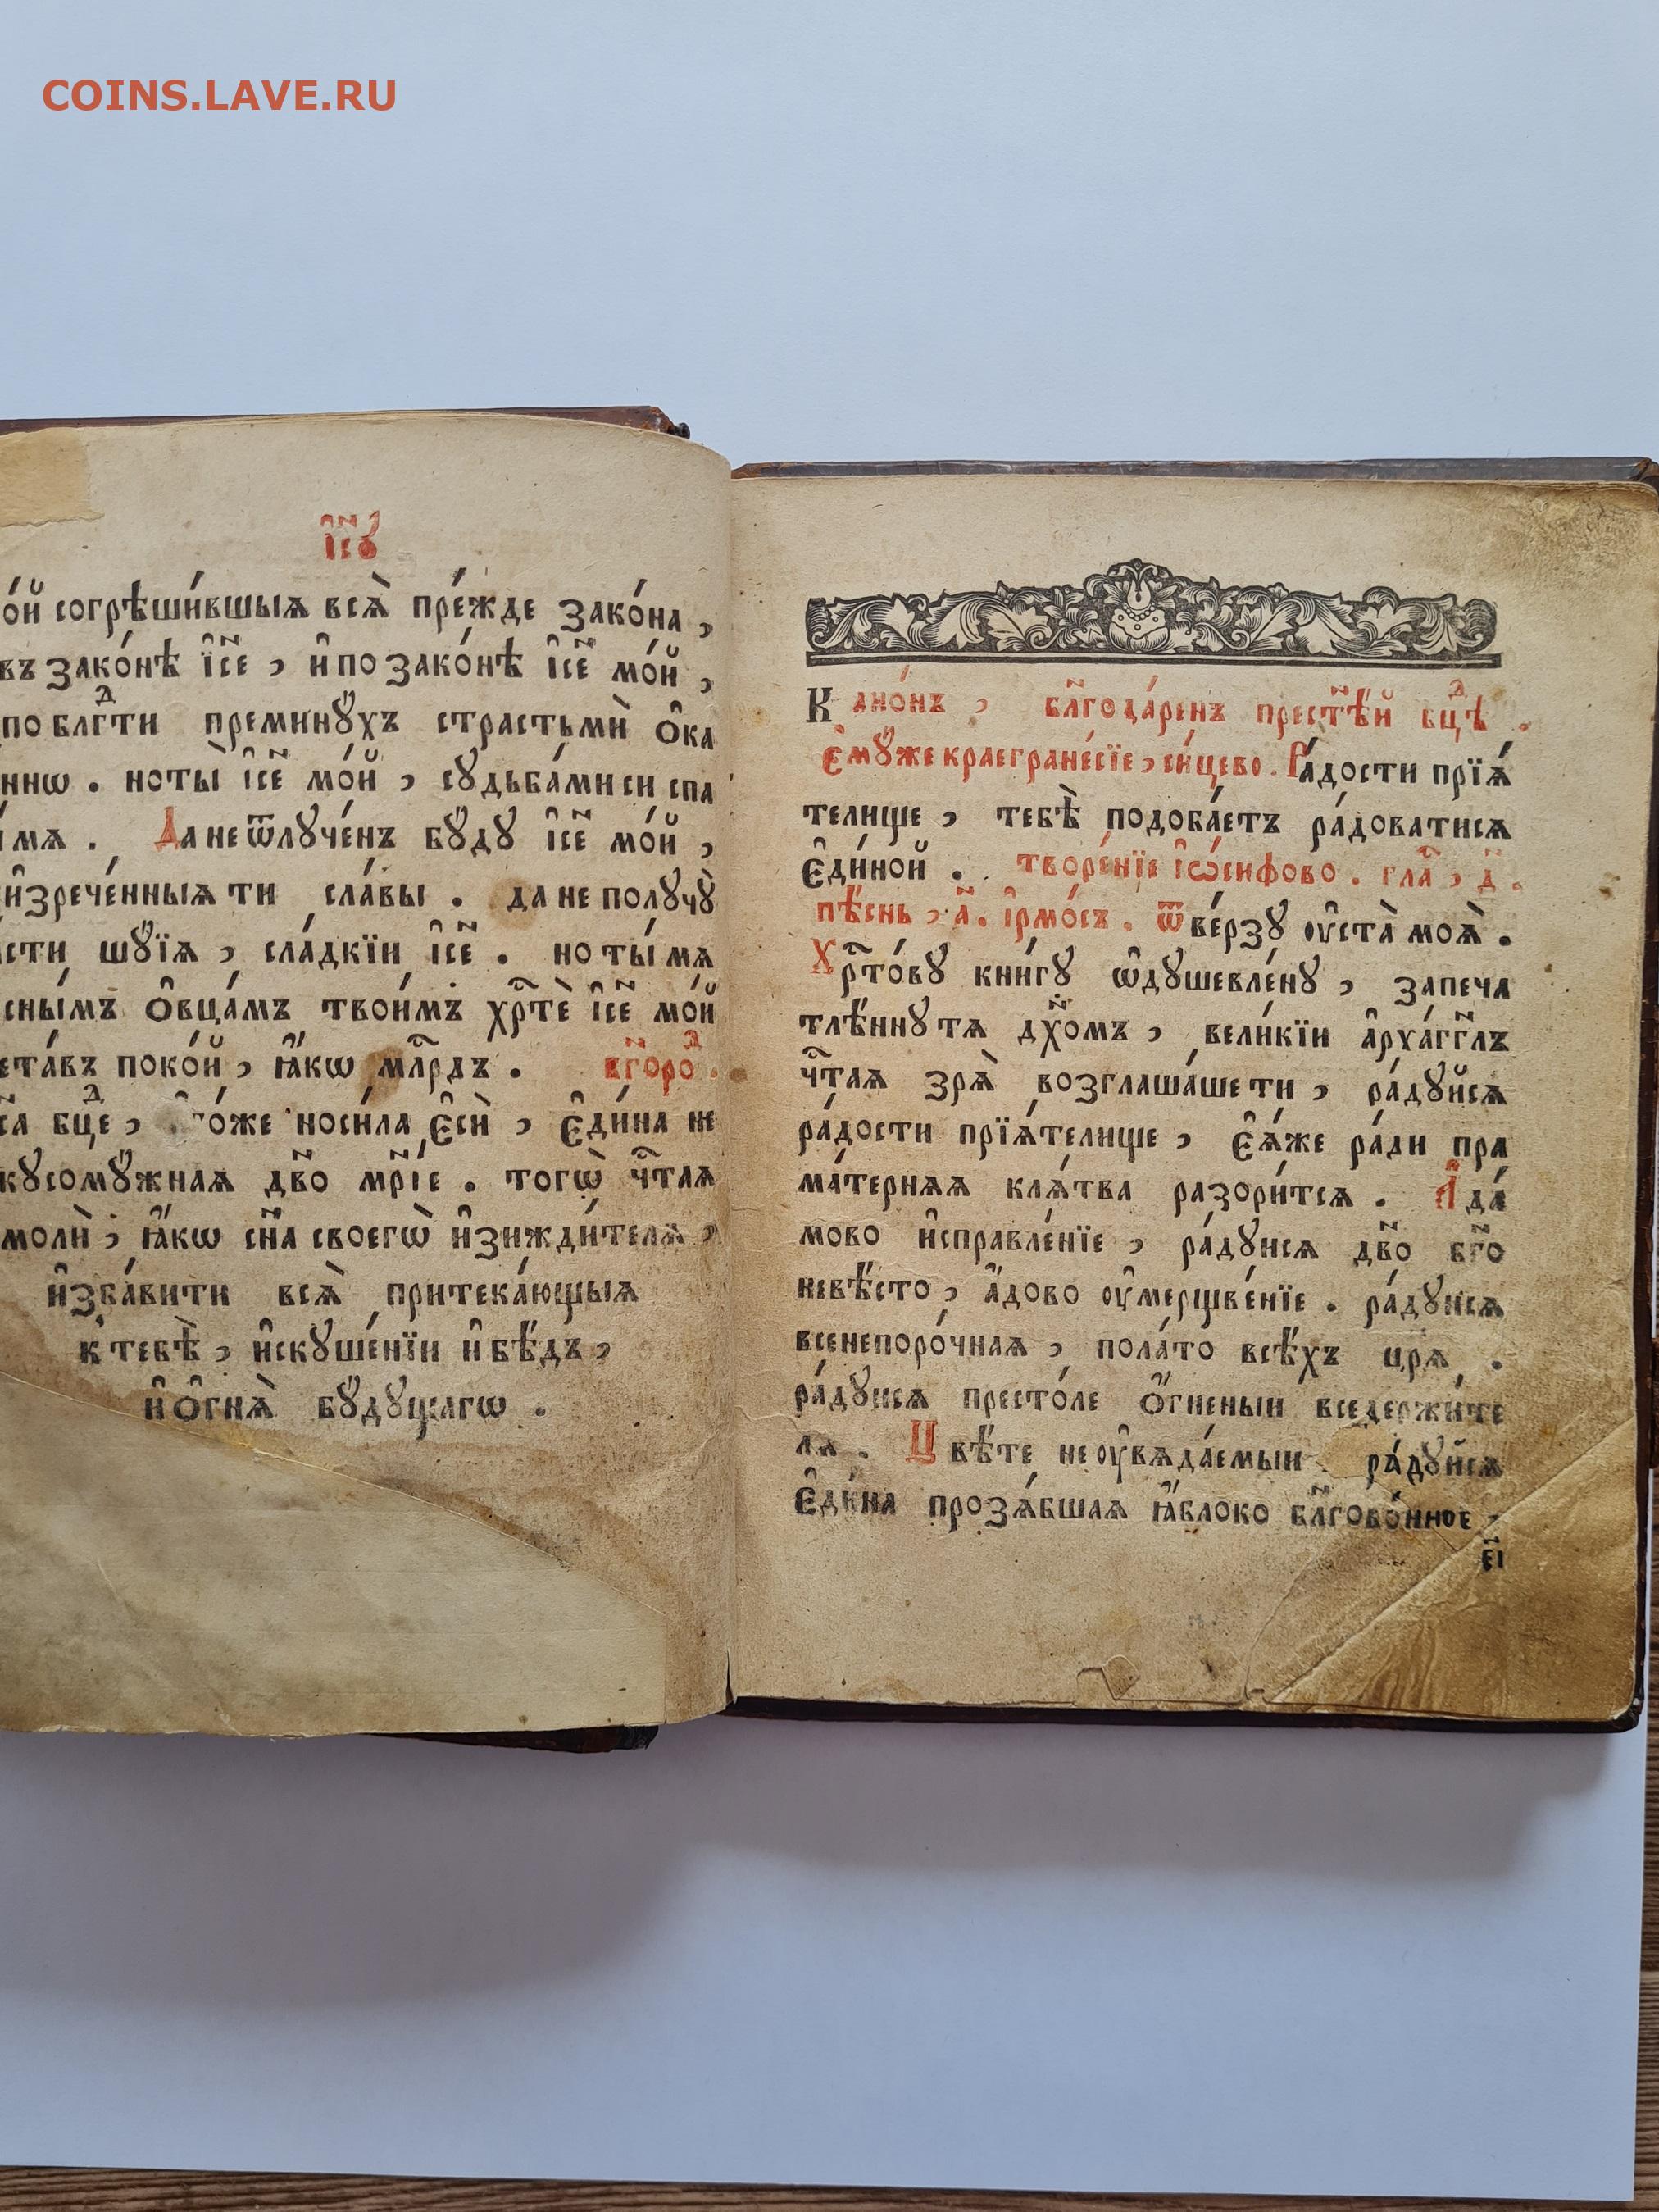 COINS.LAVE.RU
І҆с҃ꙋ
о́й согрѣши́вшыѧ всѧ̀ пре́жде зако́на,
въ зако́нѣ І҆с҃е, и҆ по зако́нѣ І҆с҃е мо́й,
по блгⷣти преминꙋ́хъ страстьмѝ ѻ҆ка
ннѡ. но ты̀ І҆с҃е мо́й, сꙋдьба́ми си спа
мѧ. Да не ѿлꙋче́нъ бꙋ́дꙋ І҆с҃е мо́й,
и҆зрече́нныѧ ти сла́вы. да не полꙋчꙋ̀
сти шꙋ́їѧ, сла́дкїи І҆с҃е. но ты́ мѧ
сны́мъ ѻ҆вца́мъ твои́мъ хрⷭ҇тѐ І҆с҃е мо́й
ета́въ поко́й, ꙗ҆́кѡ млⷭ҇рдъ. бг҃оро́ⷣ.
бцⷣе, о́же носи́ла є҆сѝ, є҆ди́на не
кꙋсомꙋ́жнаѧ дв҃о мр҃і́е. тогѡ̀ чⷭ҇таѧ
молѝ, ꙗ҆́кѡ сн҃а своегѡ̀ и҆зижди́телѧ,
и҆зба́вити всѧ̀ притека́ющыѧ
к̾ тебѣ̀, и҆скꙋше́нїи и҆ бѣ́дъ,
и҆ ѻ҆гнѧ̀ бꙋ́дꙋщагѡ.
Кано́нъ, бл҃года́ренъ прест҃ѣ́й бцⷣѣ.
є҆мꙋ́же краегране́сїе, си́цево. Ра́дости прїѧ́
телище, тебѣ̀ подоба́етъ ра́доватисѧ
є҆ди́ной. творе́нїе і҆ѡ́сифово. гла́ⷭ, д҃.
пѣ́снь, а҃. і҆рмо́съ. ѿве́рзꙋ ѹ҆ста̀ моѧ̀.
Хрⷭ҇то́вꙋ кни́гꙋ ѡ҆дꙋшевле́нꙋ, запеча
тлѣ́ннꙋ тѧ дх҃омъ, вели́кїи а҆рха́гг҃лъ
чⷭ҇таѧ зрѧ̀ возглаша́ше ти, ра́дꙋйсѧ
ра́дости прїѧ́телище, є҆ѧ́же ра́ди пра
ма́тернѧѧ клѧ́тва разори́тсѧ. А҆да́
мово и҆справле́нїе, ра́дꙋисѧ дв҃о бг҃о
невѣ́сто, а҆́дово ѹ҆мерщве́нїе. ра́дꙋисѧ
всенепоро́чнаѧ, пола́то всѣ́хъ цр҃ѧ.
ра́дꙋисѧ престо́ле ѻ҆́гненыи вседержи́те
лѧ. Цвѣ́те не ѹ҆вѧда́емыи ра́дꙋйсѧ
є҆ди́на прозѧ́бшаѧ ꙗ҆́блоко бл҃гово́нное,
є҃і